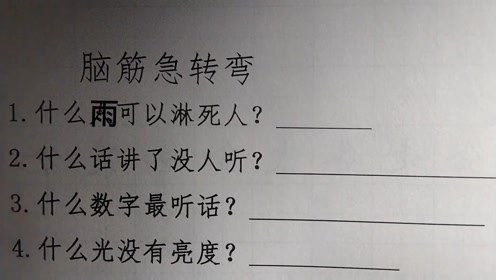 脑筋急转弯
1.什么雨可以淋死人？
2.什么话讲了没人听？
3.什么数字最听话？
4.什么光没有亮度？